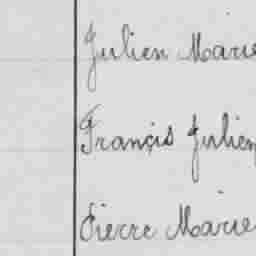 Julien Marie
Francis Julien
Pierre Marie